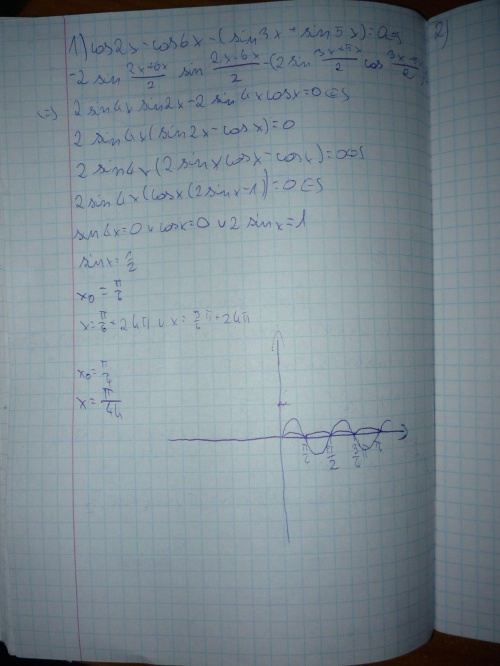 1) cos2x-cos6x-(sin3x+sin5x)=0⇔
-2 sin (2x+6x)/2 sin (2x-6x)/2 -(2sin (3x+5x)/2 cos (3x-5x)/2)
⇔ 2 sin4x sin2x-2 sin4x cosx=0⇔
2 sin4x(sin2x-cosx)=0
2 sin4x(2sinxcosx-cosx)=0⇔
2sin4x(cosx(2sinx-1))=0⇔
sin4x=0 ∨ cosx=0 ∨ 2 sinx=1
sinx=1/2
x₀=π/6
x=π/6+2kπ ∨ x=5/6π+2kπ
x₀=π/4
x=π/4k
π/4 π/2 3/4π π
2)